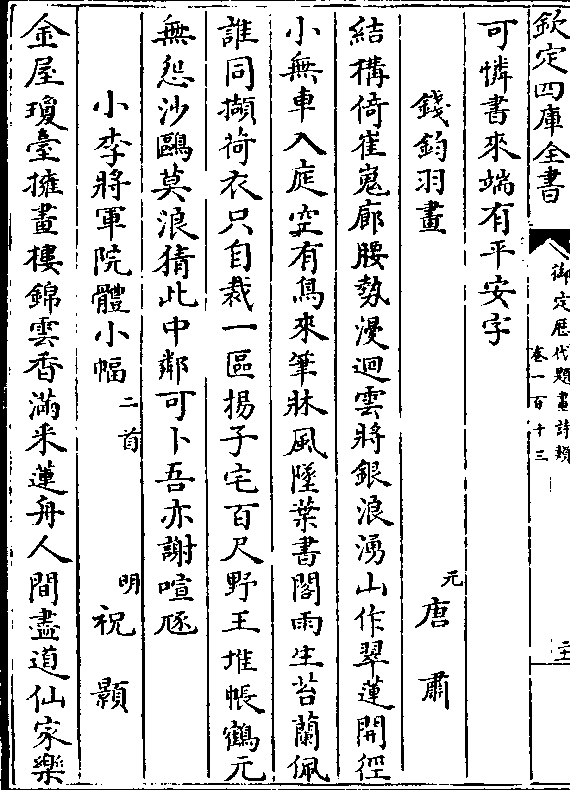 欽定四庫全書
御定歷代題畫詩類
卷一百十三
可憐書來端有平安字
錢鈞羽畫 元 唐肅
結構倚崔嵬廊腰勢漫迴雲將銀浪湧山作翠蓮開徑
小無車入庭空有鳥來筆牀風墜葉書閣雨生苔蘭佩
誰同擷荷衣只自裁一區揚子宅百尺野王堆帳鶴元
無怨沙鷗莫浪猜此中鄰可卜吾亦謝喧豗
小李將軍院體小幅 二首 明 祝顥
金屋瓊臺擁畫樓錦雲香滿采蓮舟人間盡道仙家樂